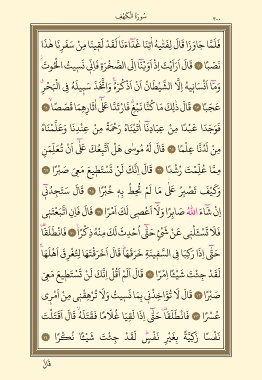 سُورَةُ الْكَهْفِ ٣٠٠
فَلَمَّا جَاوَزَا قَالَ لِفَتٰيهُ اٰتِنَا غَدَٓاءَنَاۘ لَقَدْ لَقٖينَا مِنْ سَفَرِنَا هٰذَا
نَصَباً ﴿٦٢﴾ قَالَ اَرَاَيْتَ اِذْ اَوَيْنَٓا اِلَى الصَّخْرَةِ فَاِنّٖي نَسٖيتُ الْحُوتَۘ
وَمَٓا اَنْسَانٖيهُ اِلَّا الشَّيْطَانُ اَنْ اَذْكُرَهُۚ وَاتَّخَذَ سَبٖيلَهُ فِي الْبَحْرِۗ
عَجَباً ﴿٦٣﴾ قَالَ ذٰلِكَ مَا كُنَّا نَبْغِۗ فَارْتَدَّا عَلٰٓى اٰثَارِهِمَا قَصَصاًۙ ﴿٦٤﴾
فَوَجَدَا عَبْداً مِنْ عِبَادِنَٓا اٰتَيْنَاهُ رَحْمَةً مِنْ عِنْدِنَا وَعَلَّمْنَاهُ
مِنْ لَدُنَّا عِلْماً ﴿٦٥﴾ قَالَ لَهُ مُوسٰى هَلْ اَتَّبِعُكَ عَلٰٓى اَنْ تُعَلِّمَنِ
مِمَّا عُلِّمْتَ رُشْداً ﴿٦٦﴾ قَالَ اِنَّكَ لَنْ تَسْتَطٖيعَ مَعِيَ صَبْراً ﴿٦٧﴾
وَكَيْفَ تَصْبِرُ عَلٰى مَا لَمْ تُحِطْ بِهٖ خُبْراً ﴿٦٨﴾ قَالَ سَتَجِدُنٖٓي
اِنْ شَٓاءَ اللّٰهُ صَابِراً وَلَٓا اَعْصٖي لَكَ اَمْراً ﴿٦٩﴾ قَالَ فَاِنِ اتَّبَعْتَنٖي
فَلَا تَسْـَٔلْنٖي عَنْ شَيْءٍ حَتّٰٓى اُحْدِثَ لَكَ مِنْهُ ذِكْراً۟ ﴿٧٠﴾ فَانْطَلَقَا۠
حَتّٰٓى اِذَا رَكِبَا فِي السَّفٖينَةِ خَرَقَهَاۜ قَالَ اَخَرَقْتَهَا لِتُغْرِقَ اَهْلَهَاۚ
لَقَدْ جِئْتَ شَيْـٔاً اِمْراً ﴿٧١﴾ قَالَ اَلَمْ اَقُلْ اِنَّكَ لَنْ تَسْتَطٖيعَ مَعِيَ
صَبْراً ﴿٧٢﴾ قَالَ لَا تُؤَاخِذْنٖي بِمَا نَسٖيتُ وَلَا تُرْهِقْنٖي مِنْ اَمْرٖي
عُسْراً ﴿٧٣﴾ فَانْطَلَقَا۠ حَتّٰٓى اِذَا لَقِيَا غُلَاماً فَقَتَلَهُۙ قَالَ اَقَتَلْتَ
نَفْساً زَكِيَّةً بِغَيْرِ نَفْسٍۜ لَقَدْ جِئْتَ شَيْـٔاً نُكْراً ﴿٧٤﴾
قَالَ